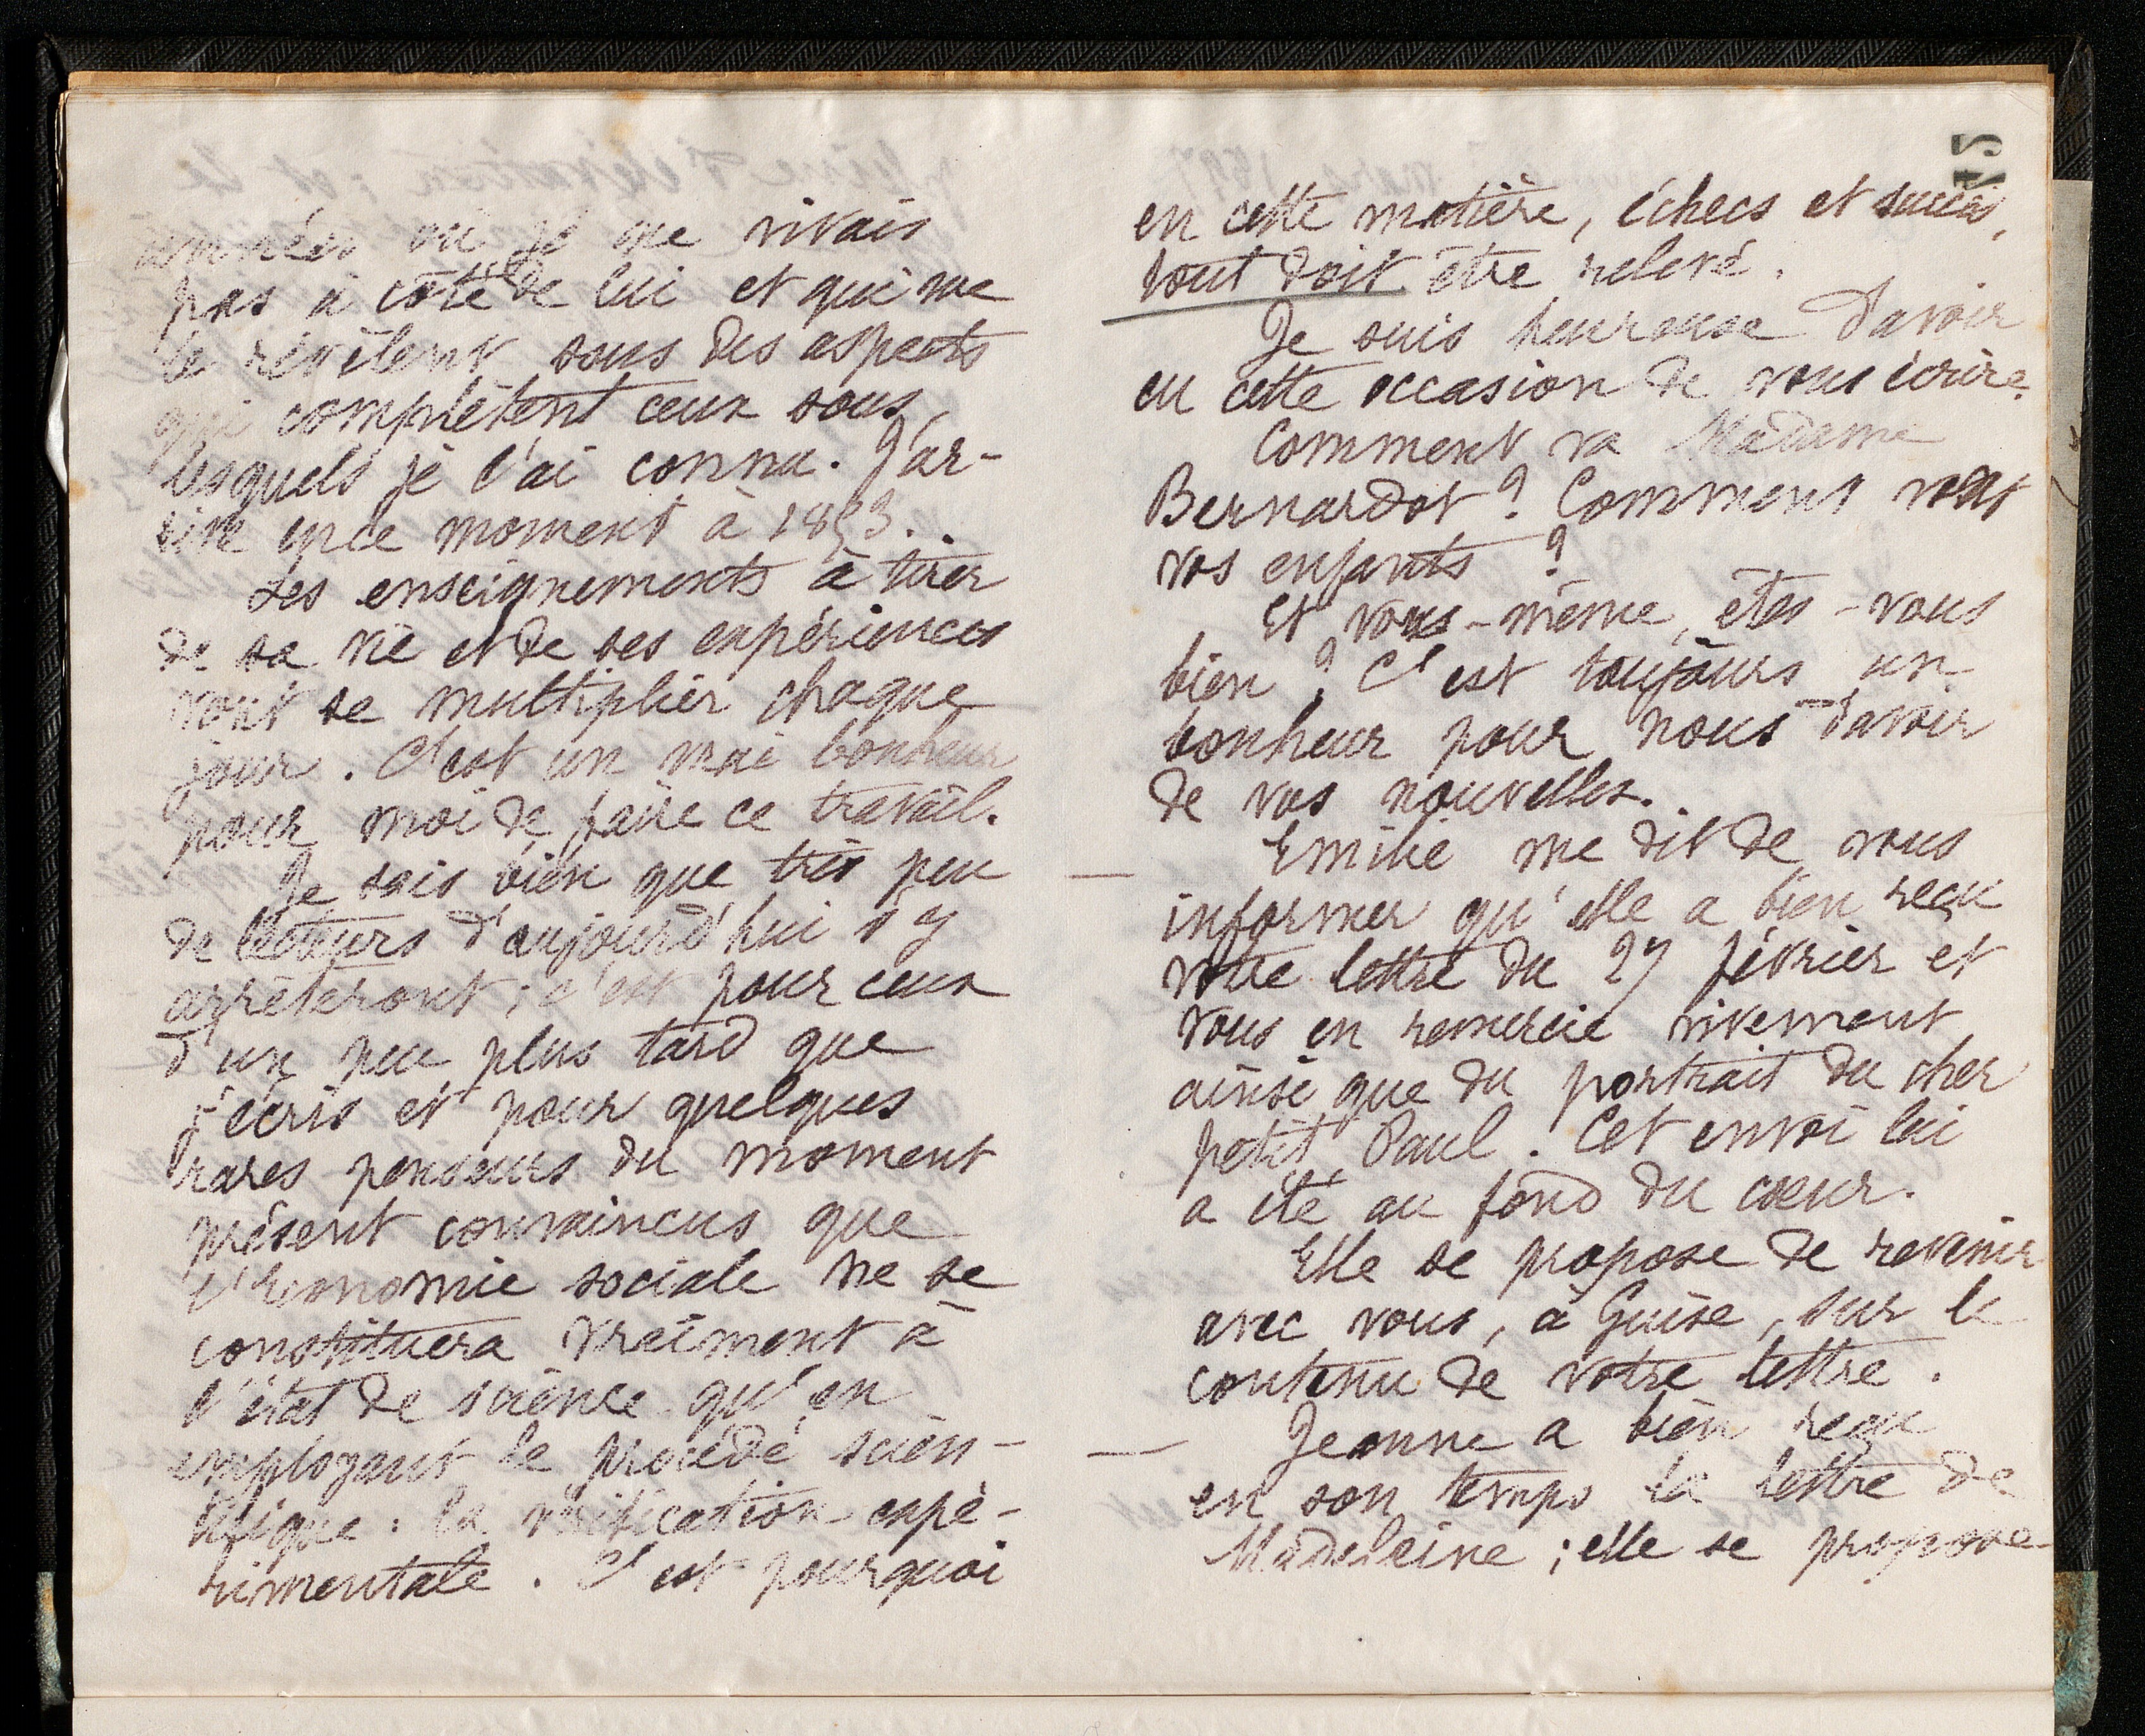 années où je ne vivais
pas à côté de lui et qui me
le révèlent sous des aspects
qui complètent ceux sous
lesquels je l'ai connu. J'ar-
rive en ce moment à 1853.
Les enseignements à tirer
de sa vie et de ses expériences
vont se multiplier chaque
jour. C'est un vrai bonheur
pour moi de faire ce travail.
Je sais bien que très peu
de lecteurs d'aujourd'hui s'y
arrêteront ; c'est pour ceux
d'un peu plus tard que
j'écris et pour quelques
rares penseurs du moment
présent convaincus que
l'économie sociale ne se
constituera vraiment à
l'état de science qu'en
employant le procédé scien-
tifique : la vérification expé-
rimentale. C'est pourquoi
115
en cette matière, échecs et succès,
tout doit être relevé.
Je suis heureuse d'avoir
eu cette occasion de vous écrire.
Comment va Madame
Bernardot ? Comment vont
vos enfants ?
Et vous-même, êtes-vous
bien ? C'est toujours un
bonheur pour nous d'avoir
de vos nouvelles.
— Emilie me dit de vous
informer qu'elle a bien reçu
votre lettre du 27 février et
vous en remercie vivement
ainsi que du portrait du cher
petit Paul. Cet envoi lui
a été au fond du cœur.
Elle se propose de revenir
avec vous, à Guise, sur le
contenu de votre lettre.
— Jeanne a bien reçu
en son temps la lettre de
Madeleine ; elle se propose